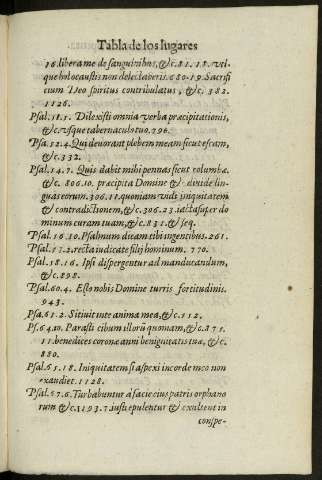 Tabla de los lugares
16. libera me de sanguinibus, &c. 81. 18. vel-
que holocaustis non delectaberis. 680. 19. Sacrifi
cium Deo spiritus contribulatus, &c. 382.
1126.
Psal. 51. Dilexisti omnia verba præcipitationis,
&c. vsque tabernaculo tuo. 796.
Psa. 52. 4. Qui deuorant plebem meam sicut escam,
&c. 332.
Psal. 54. 7. Quis dabit mihi pennas sicut columbæ.
&c. 806. 10. præcipita Domine & diuide lin-
guas eorum. 306. 11. quoniam vidi iniquitatem
& contradictionem, &c. 306. 23. iacta super do
minum curam tuam, &c. 831. & seq.
Psal. 56. 10. Psalmum dicam tibi in gentibus. 261.
Psal. 57. 2. recta iudicate filij hominum. 770.
Psal. 58. 16. Ipsi dispergentur ad manducandum,
&c. 898.
Psal. 60. 4. Esto nobis Domine turris fortitudinis.
943.
Psa. 61. 2. Sitiuit in te anima mea, &c. 112.
Ps. 64. 10. Parasti cibum illorũ quoniam, &c. 871.
11. benedices coronæ anni benignitatis tuæ, &c.
880.
Psal. 65. 18. Iniquitatem si aspexi in corde meo non
exaudiet. 1128.
Psal. 67. 6. Turbabuntur à facie eius patris orphano
rum &c. 1193. 7. iusti epulentur & exultent in
conspe-